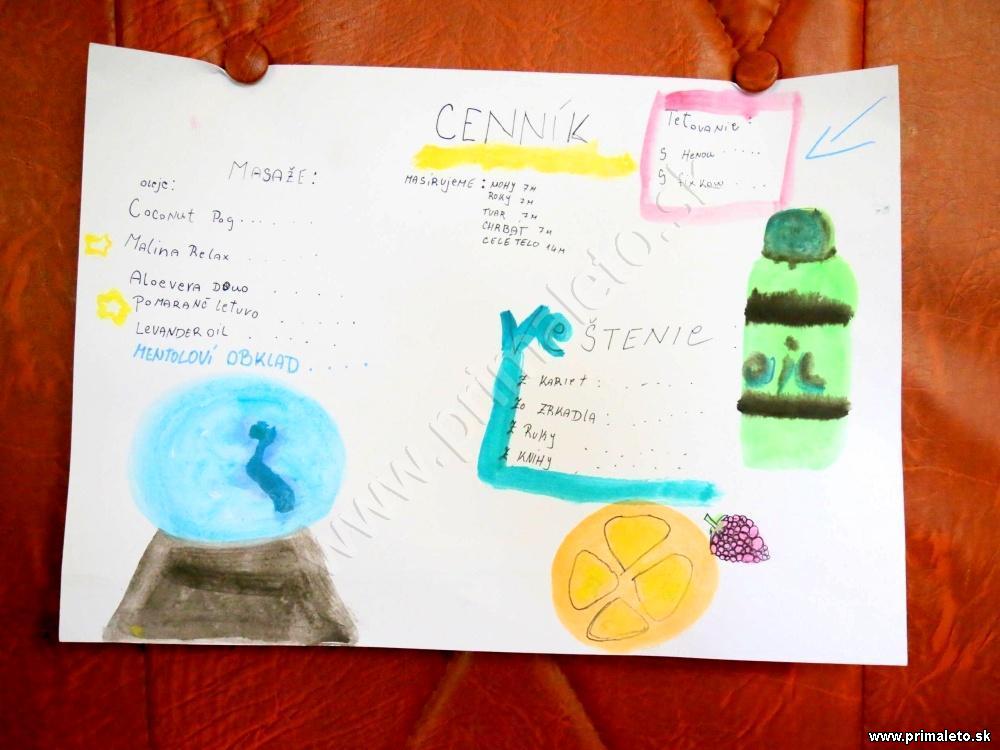 CENNÍK
MASAŽE:
oleje:
COCONUT POG....
MALINA RELAX ....
ALOEVERA DUO ....
POMARANČ LETUVO ....
LEVANDER OIL ....
MENTOLOVÍ OBKLAD ....
MASÍRUJEME: NOHY 7M
ROKY 7M
TVAR 7M
CHRBÁT 7M
CELE TELO 14M
Teťovanie:
S HENOU .....
S fixkow ....
VEŠTENIE :
Z KARIET: .....
ZO ZRKADLA: ....
Z RUKY .....
Z KNIHY .....
OIL
www.primaleto.sk
www.primaleto.sk